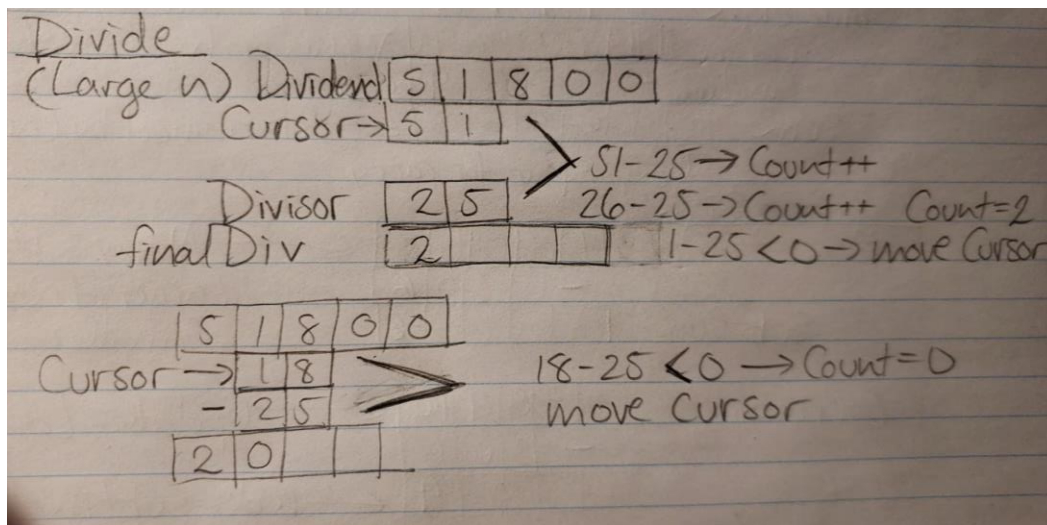 Divide
(Large n) Dividend 5 1 8 0 0
Cursor→ 5 1
51-25→ Count++
Divisor 2 5 26-25→Count++ Count=2
final Div 2 1-25<0→move Cursor
5 1 8 0 0
Cursor→ 1 8 18-25<0→Count=0
- 2 5 move Cursor
2 0